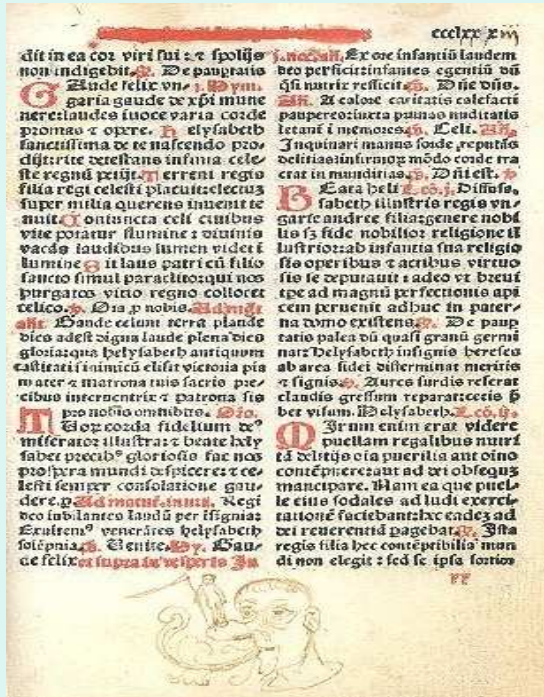 ccclxx x iij
dit in ea cor viri sui: ⁊ spolijs
non indigebit. ℟. De paupratis
GAude felix vn⸗ j. Hym.
garia gaude de xp̄i mune
nere: laudes i voce varia corde
promas ⁊ opere. Helysabeth
sanctissima de te nascendo pro⸗
dijt: rite detestans infima cele⸗
ste regnū petijt. Terreni regis
filia regi celesti placuit: electus
super milia querens inuenit te
nuit. Coniuncta celi ciuibus
vite potatur flumine: ⁊ diuinis
vacās laudibus lumen videt ī
lumine. Sit laus patri cū filio
sancto simul paraclito: qui nos
purgatos vitio regno collocet
celico. ℣. Ora ꝓ nobis. Ad mgt
añ. Gaude celum terra plaude
dies adest digna laude plena dies
gloria: qua helysabeth antiquum
castitati inimicū elisit victoria pia
mater ⁊ matrona tuis sacris pre⸗
cibus interuentrix ⁊ patrona sis
pro nobis omnibus. Oro.
TUorum corda fidelium de⁹
miserator illustra: ⁊ beate hely
sabet precib⁹ gloriosis fac nos
prospera mundi despicere: ⁊ ce⸗
lesti semper consolatione gau⸗
dere. ꝑ. Ad matut. inuit. Regi
deo iubilantes laudū per isignia:
Exultem⁹ venerātes helysabeth
solēpnia. ps. Venite. Hy. Gau⸗
de felix et supra in vesperis In
j. noc. añ. Ex ore infantiū laudem
deo perficit: infantes egentiū dū
q̄si nutrix refficit. ps. Dn̄e dn̄s.
Añ. A calore caritatis calefacti
pauperes: iuxta prunas nuditatis
letant ī memores. ps. Celi. Añ.
Inquinari manus sorde reputās
delitias: infirmos mōdo corde tra
ctat in munditias. ps. Dn̄i est. ℣.
BEata heli Lcō. j. Diffusa.
sabeth illustris regis vn⸗
garie andree filia: genere nobi
lis sz fide nobilior religione il
lustrior: ab infantia sua religio
sis operibus ⁊ actibus virtuo
sis se deputauit: adeo vt breui
tpe ad magnū perfectionis api
cem peruenit adhuc in pater⸗
na domo existens. ℟. De paup
tatis palea dū quasi granū germi
nat: Helysabeth insignis hereses
ab area fidei disterminat meritis
⁊ signis. ℣. Aures surdis reserat
claudis gressum reparat: cecis p̄
bet visum. Helysabeth. Lcō. ij.
MIrum enim erat videre
puellam regalibus nutri
tā delitijs oia puerilia aut oīno
contēpnere: aut ad dei obsequiū
mancipare. Nam ea que puel⸗
le eius sodales ad ludi exerci⸗
tationē faciebant: hec eadez ad
dei reuerentiā pagebat. ℟. Ista
regis filia hec contēptibilia mun
di non elegit: sed se ipsa fortior